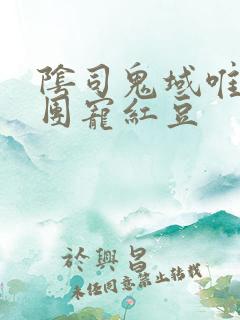 陰司鬼域唯
團寵紅豆
於興昌
未经同意禁止转载